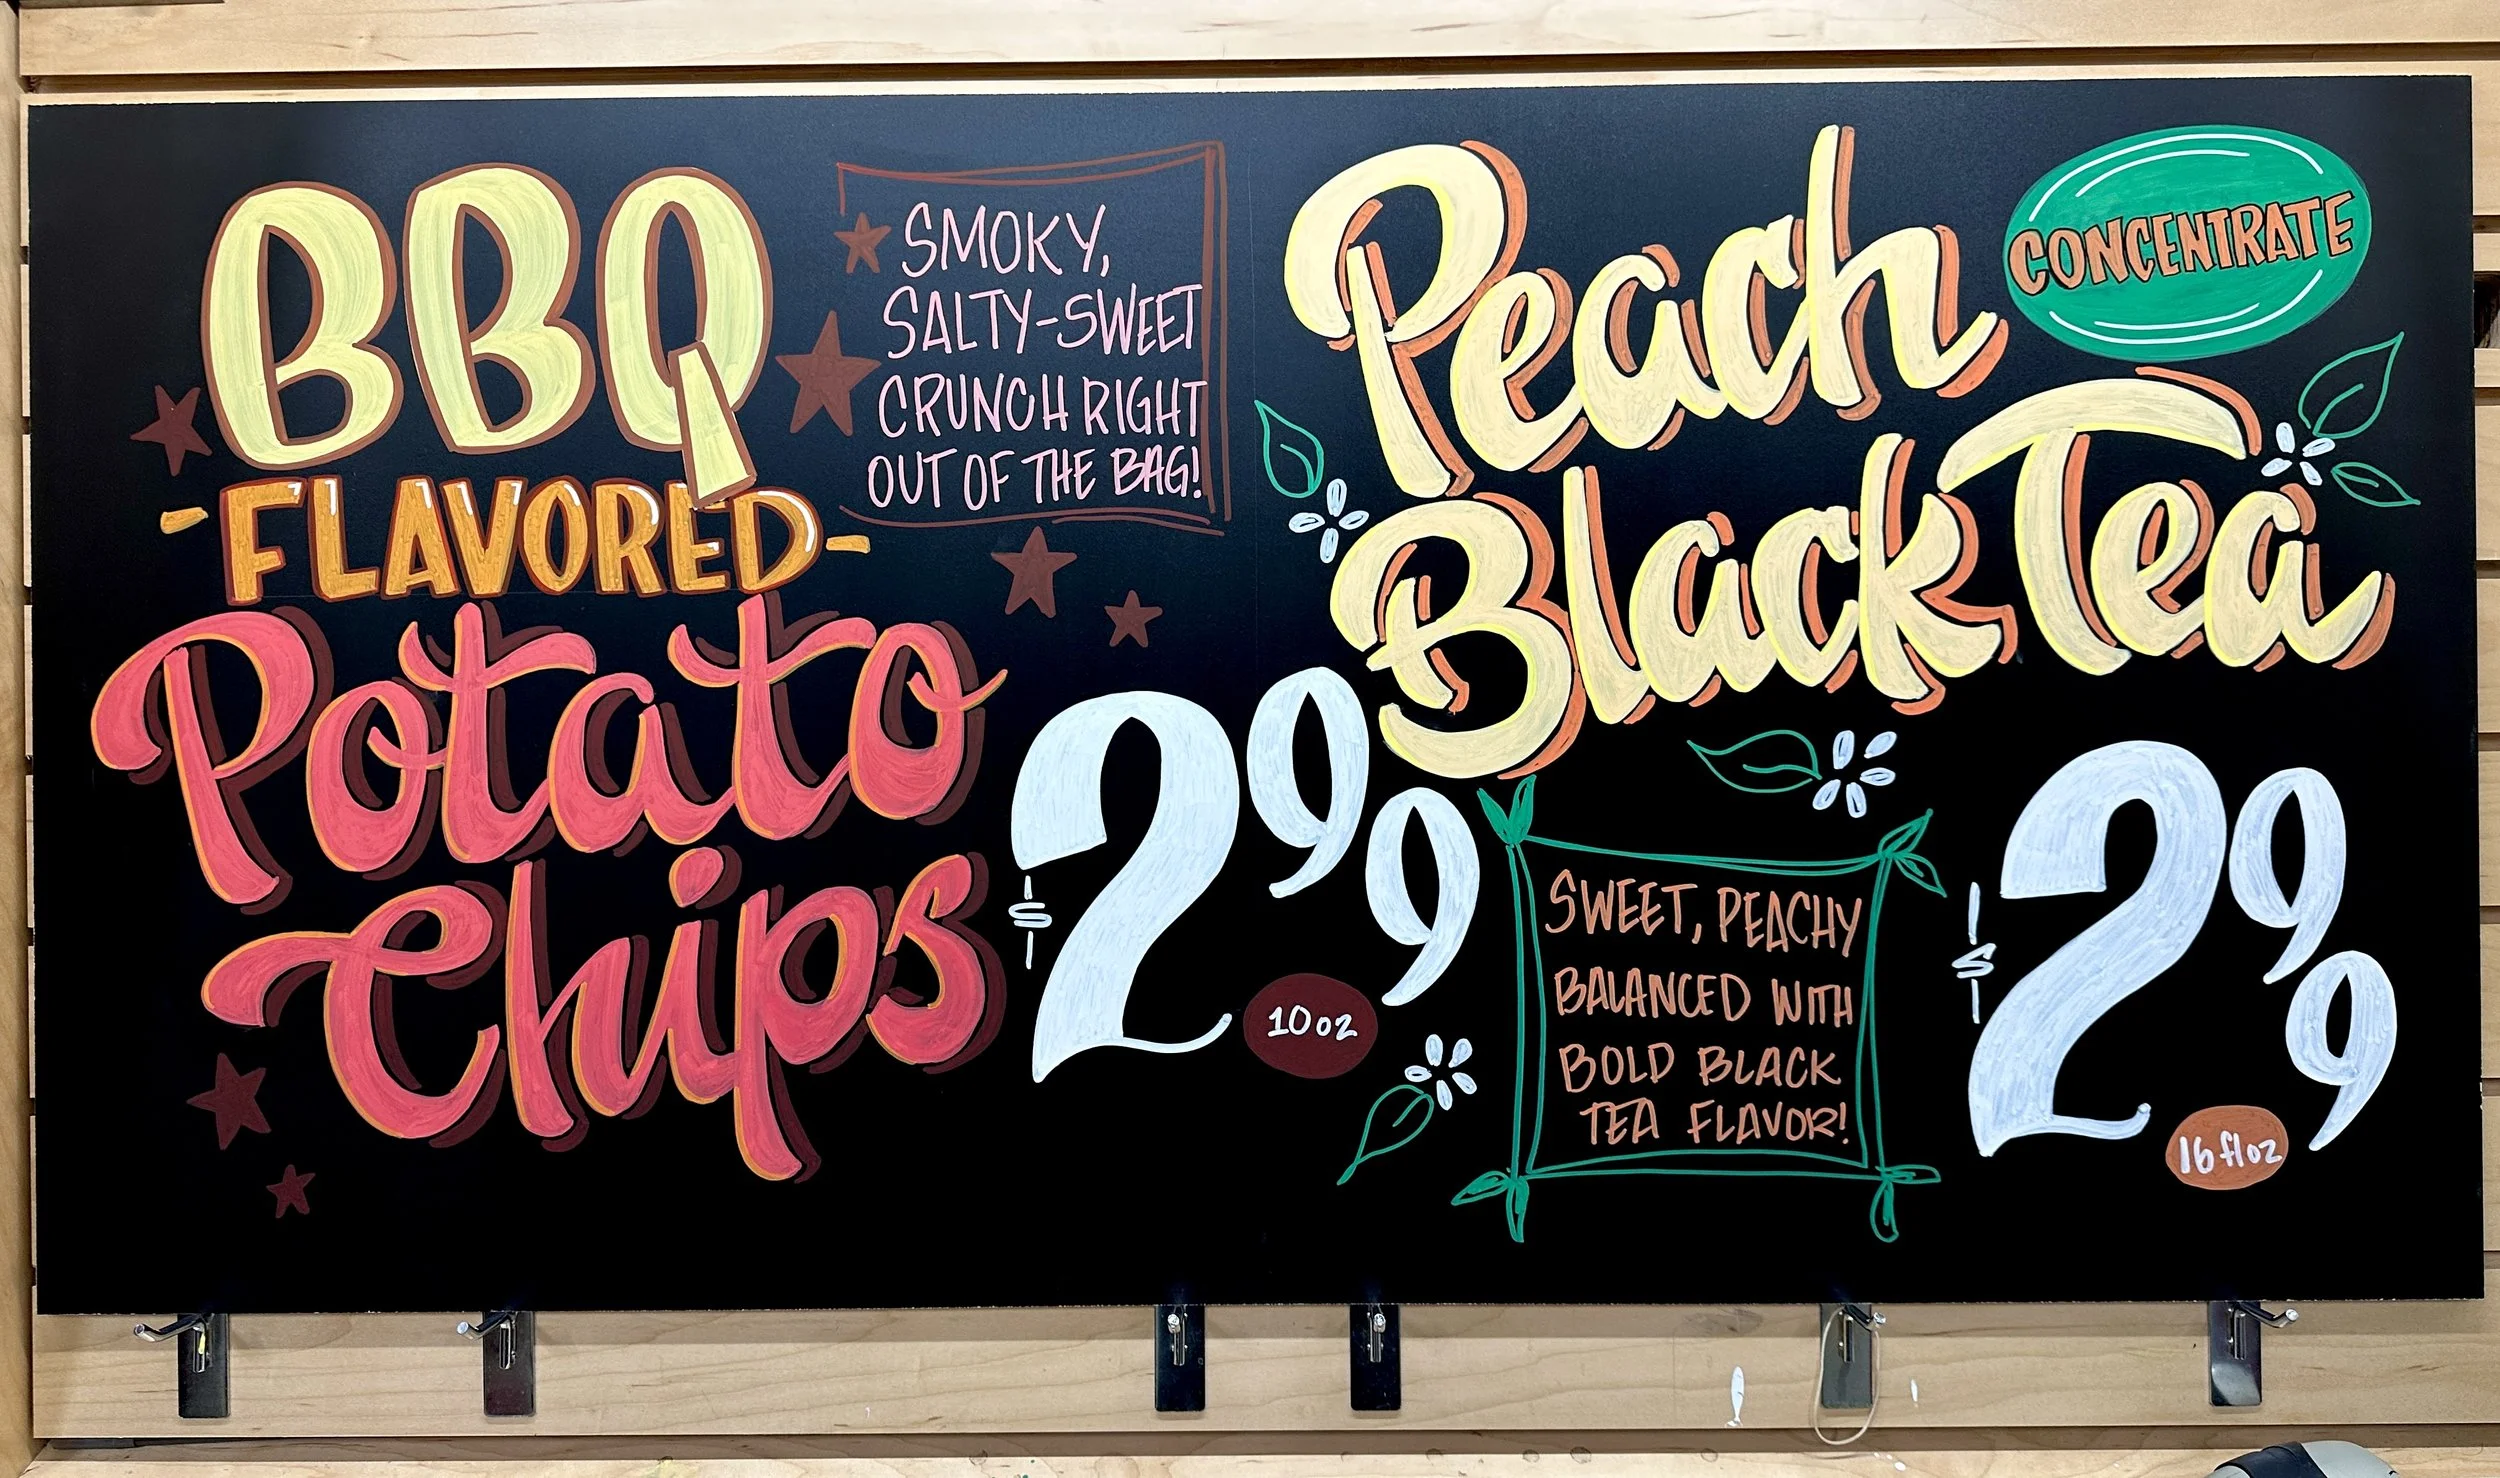 BBQ
-FLAVORED-
Potato
Chips
SMOKY,
SALTY-SWEET
CRUNCH RIGHT
OUT OF THE BAG!
$2.99
10 oz
Peach
Black Tea
CONCENTRATE
SWEET, PEACHY
BALANCED WITH
BOLD BLACK
TEA FLAVOR!
$2.99
16 fl oz